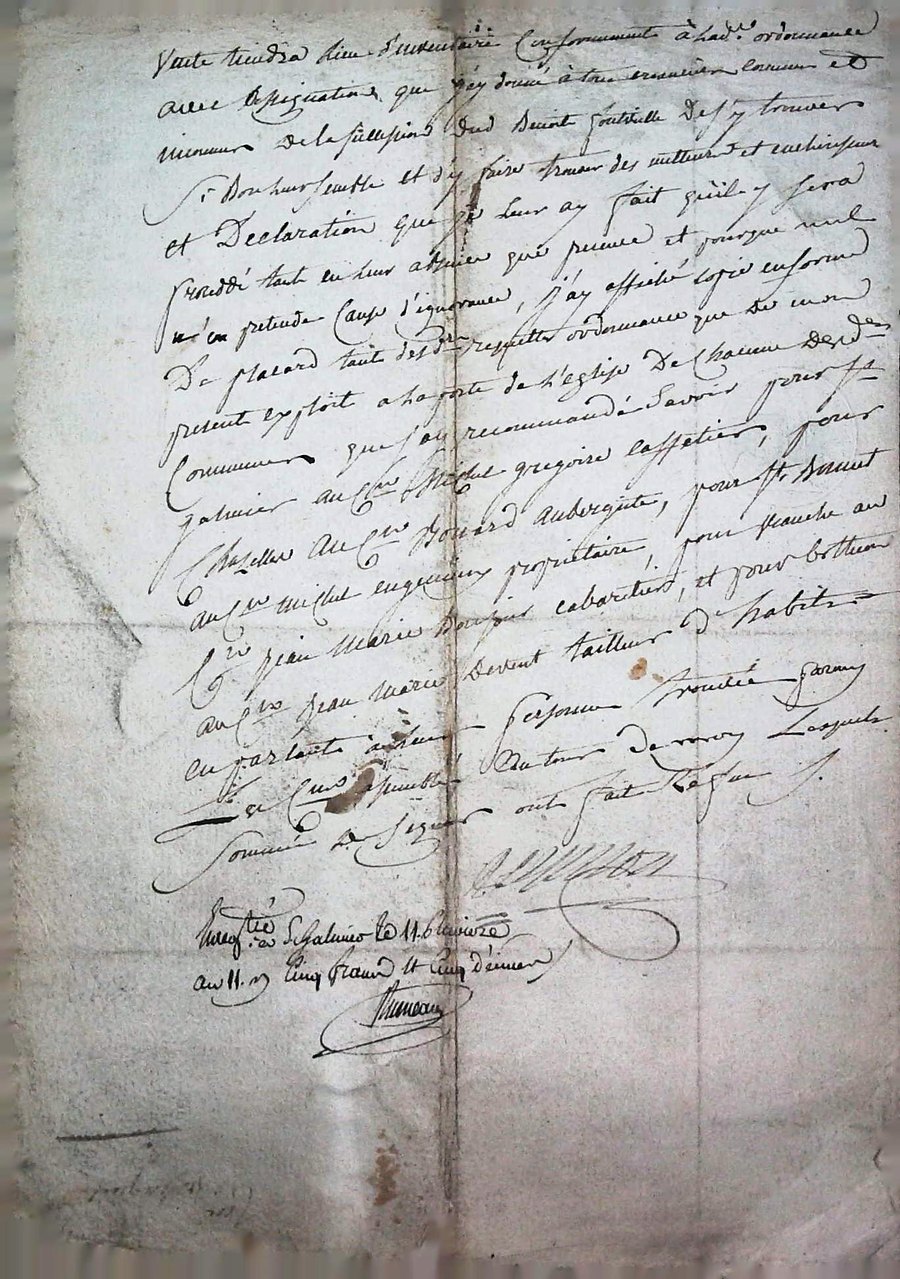 Vente tiendra lieu d'inventaire Conformement à lad.e ordonnance
avec assignation que j'ay donné à tous creanciers connus et
inconnus de la succession dud Benoit De s'y trouver
Si Bon leur semble et d'y faire trouver des metteurs et encherisseurs
et Declaration que je leur ay fait qu'il y sera
proceddé tant en leur absence que presence et pourque nul
n'en pretende Cause d'ignorance, j'ay affiché copie en forme
De placard tant desd.es requette ordonnance que de mon
present exploit a la porte de l'eglise De Chacune Desd.es
Communes que j'ay recommandé Savoir pour st
galmier au Cen Michel gregoire caffetier, pour
Chazelles au Cen Bouard aubergiste, pour st Bonnet
au Cen Michel proprietaire, pour au
Cen jean Marie cabaretier, et pour
au Cen jean Marie Devent tailleur d'habits
en parlant à leur personne trouvée parmy
Les Cens assemblés Autour De moy Lesquels
Sommé De Signer ont fait Refus
Enregtré a St Galmier le 11
an 11. Cinq francs et Cinq décimes